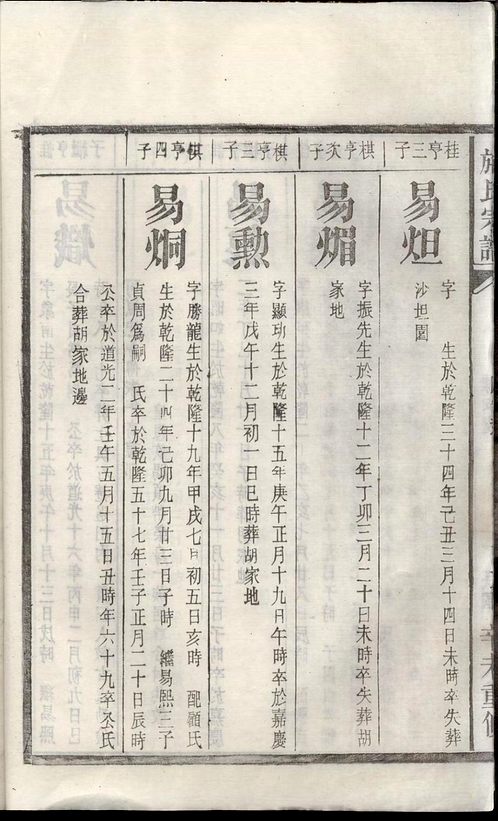 氏宗譜
辛未重修
桂亨三子
易炟
字 生於乾隆三十四年己丑三月十四日未時卒失葬
沙坦園
棋亨次子
易焻
字振先生於乾隆十二年丁卯三月二十日未時卒失葬胡
家地
棋亨三子
易勲
字顯功生於乾隆十五年庚午正月十九日午時卒於嘉慶
三年戊午十二月初一日巳時葬胡家地
棋亨四子
易炯
字勝龍生於乾隆十九年甲戌七月初五日亥時 配顧氏
生於乾隆二十四年己卯九月廿三日子時 繼易熙三子
貞周爲嗣 氏卒於乾隆五十七年壬子正月二十日辰時
公卒於道光二年壬午五月十五日丑時年六十九卒公氏
合葬胡家地邊